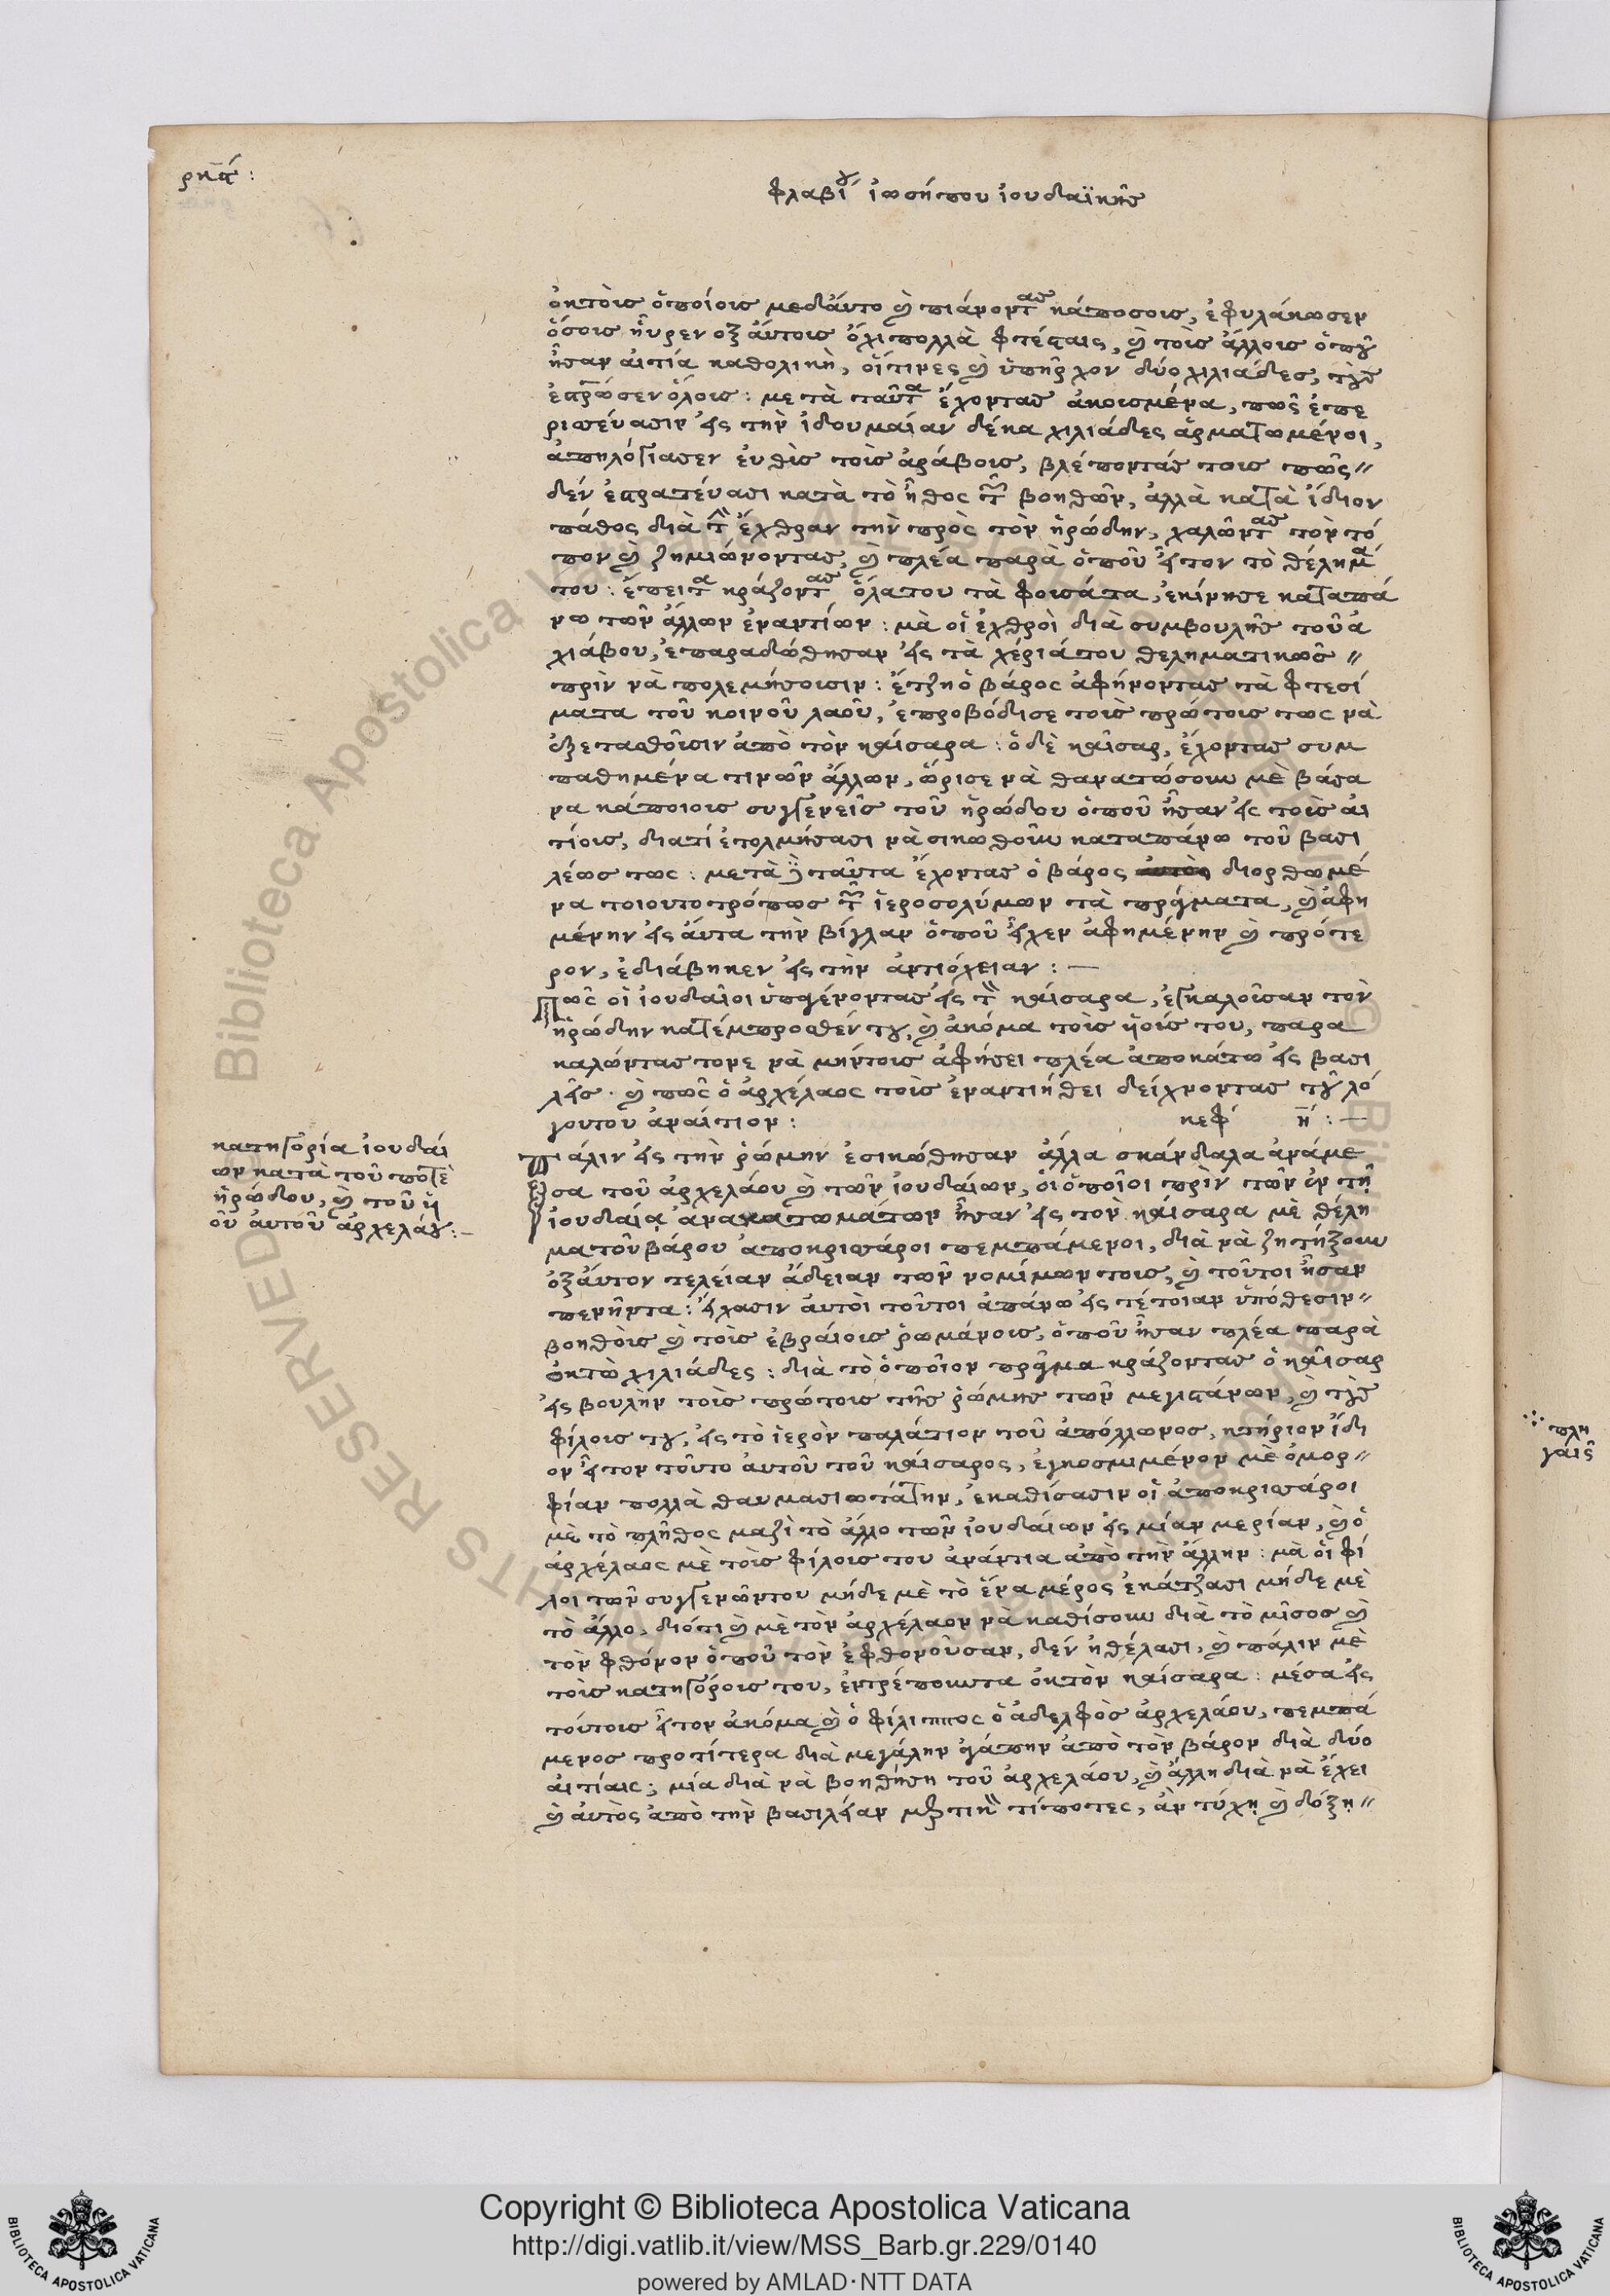 ρκα:
φλαβίου ἰωσήπου ἰουδαϊκῆς
ὀκτοῖς ὁποίοις μεδἄυτο καὶ πιάνοντας κάποσοις, ἐφυλάκωσεν
ὅσοις ηὗρεν ὀξ ἄυτοις ὀλιπολλὰ φτέσταις, καὶ τοῖς ἄλλοις ὁποῦ
ἦσαν αἰτία καθολικὴ, οἵτινες καὶ ὑπῆρχον δύο χιλιάδες, τοὺς
ἐσταύρωσεν ὅλοις: μετὰ ταῦτα ἔχοντας ἀκοισμένα, πῶς ἐπε
ρισεύασιν εἰς τὴν ἰδουμαίαν δέκα χιλιάδες ἀρματωμένοι,
ἀπηλόγιασεν ἐυθὶς τοῖς ἀράβοις, βλέποντάς τοις πῶς
δὲν ἐστρατέυασι κατὰ τὸ ἦθος τῶν βοηθῶν, ἀλλὰ κατὰ ἴδιον
πάθος διὰ τὴν ἔχθραν τὴν πρὸς τὸν ἡρώδην, χαλῶντας τὸν τό
πον καὶ ζημιώνοντας, καὶ πλέα παρὰ ὁποῦ ἦτον τὸ θέλημά
του: ἔπειτα κράζοντας ὅλατου τὰ φοισάτα, ἐκίνησε καταπά
νω τῶν ἄλλων ἐναντίων: μὰ οἱ ἐχθροὶ διὰ συμβουλῆς τοῦ ἀ
χιάβου, ἐπαραδώθησαν εἰς τὰ χέριάτου θεληματικῶς
πρὶν νὰ πολεμήσοισιν: ἔτζη ὁ βάρος ἀφήνοντας τὰ φτεσί
ματα τοῦ κοινοῦ λαοῦ, ἐπροβόδισε τοὶς πρώτοις τως νὰ
ἐξετασθοῖσιν ἀπὸ τὸν καίσαρα: ὁ δὲ καῖσαρ, ἔχοντας συμ
παθημένα τινῶν ἄλλων, ὥρισε νὰ θανατώσουν μὲ βάσα
να κάποιοις συγγενεῖς τοῦ ἡρώδου ὁποῦ ἦσαν εἰς τοὶς ἀι
τίοις, διατί ἐτολμήσασι νὰ σικωθοῦν καταπάνω τοῦ βασι
λέως τως: μετὰ ταῦτα ἔχοντας ὁ βάρος διορθωμέ
να τοιουτοτρόπως τῶν ἱεροσολύμων τὰ πράγματα, καὶ ἀφη
μένην εἰς ἄυτα τὴν βίγλαν ὁποῦ εἶχεν ἀφημένην καὶ πρότε
ρον, ἐδιάβηκεν εἰς τὴν ἀντιόχειαν:
Πῶς οἱ ἰουδαῖοι ὑπαγένοντας εἰς τὸν καίσαρα, ἐγκαλοῖσαν τὸν
ἡρώδην κατέμπροσθέν του, καὶ ἀκόμα τοὶς ὑοίς του, παρα
καλώντας τονε νὰ μήντοις ἀφήσει πλέα ἀποκάτω εἰς βασι
λεῖς· καὶ πῶς ὁ ἀρχέλαος τοὶς ἐναντιήθει δείχνοντας τοῦ λό
γουτου ἀναίτιον: κεφ ή:
κατηγορία ἰουδαί
ων κατὰ τοῦ ποτὲ
ἡρώδου, καὶ τοῦ ὑι
οῦ ἀυτοῦ ἀρχελάου:
Πάλιν εἰς τὴν ῥώμην ἐσικώθησαν ἄλλα σκάνδαλα ἀνάμε
σα τοῦ ἀρχελάου καὶ τῶν ἰουδαίων, οἱ ὁποῖοι πρὶν τῶν ἐν τῇ
ἰουδαίᾳ ἀνακατωμάτων ἦσαν εἰς τὸν καίσαρα μὲ θέλη
μα τοῦ βάρου ἀποκρισάροι πεμπάμενοι, διὰ νὰ ζητήξουν
ὀξἄυτον τελείαν ἄδειαν τῶν νομίμων τοις, καὶ τοῦτοι ἦσαν
πενῆντα: εἴχασιν ἀυτοὶ τοῦτοι ἀπάνω εἰς τέτοιαν ὑπόθεσιν
βοηθοὶς καὶ τοὶς ἑβραίοις ῥωμάνοις, ὁποῦ ἦσαν πλέα παρὰ
ὀκτὼ χιλιάδες: διὰ τὸ ὁποῖον πρᾶγμα κράζοντας ὁ καῖσαρ
εἰς βουλὴν τοὶς πρώτοις τῆς ῥώμης τῶν μεγιστάνων, καὶ τοὺς
φίλοις του, εἰς τὸ ἱερὸν παλάτιον τοῦ ἀπόλλωνος, κτήριον ἴδι
ον ἦτον τοῦτο ἀυτοῦ τοῦ καίσαρος, ἐγκοσμιμένον μὲ ὀμορ
φίαν πολλὰ θαυμασιωτάτην, ἐκαθίσασιν οἱ ἀποκρισάροι
μὲ τὸ πλῆθος μαζὶ τὸ ἄλλο τῶν ἰουδαίων εἰς μίαν μερίαν, καὶ ὁ
ἀρχέλαος μὲ τοὶς φίλοις του ἀνάντια ἀπὸ τὴν ἄλλην: μὰ οἱ φί
λοι τῶν συγγενῶντου μήδε μὲ τὸ ἕνα μέρος ἐκάτζασι μήδε μὲ
τὸ ἄλλο, διότι καὶ μὲ τὸν ἀρχέλαον νὰ καθίσουν διὰ τὸ μῖσος καὶ
τὸν φθόνον ὁποῦ τὸν ἐφθονοῦσαν, δὲν ἠθέλασι, καὶ πάλιν μὲ
τοὶς κατηγόροις του, ἐντρέπουντα ὀκτὸν καίσαρα: μέσα εἰς
τούτοις ἦτον ἀκόμα καὶ ὁ φίλιππος ὁ ἀδελφὸς ἀρχελάου, πεμπά
μενος προτίτερα διὰ μεγάλην ἀγάπην ἀπὸ τὸν βάρον διὰ δύο
ἀιτίαις; μία διὰ νὰ βοηθήση τοῦ ἀρχελάου, καὶ ἄλλη διὰ νὰ ἔχει
καὶ ἀυτὸς ἀπὸ τὴν βασιλείαν τίποτες, ἂν τύχῃ καὶ δόξῃ
πλη
γαῖς
Copyright © Biblioteca Apostolica Vaticana
http://digi.vatlib.it/view/MSS_Barb.gr.229/0140
powered by AMLAD·NTT DATA